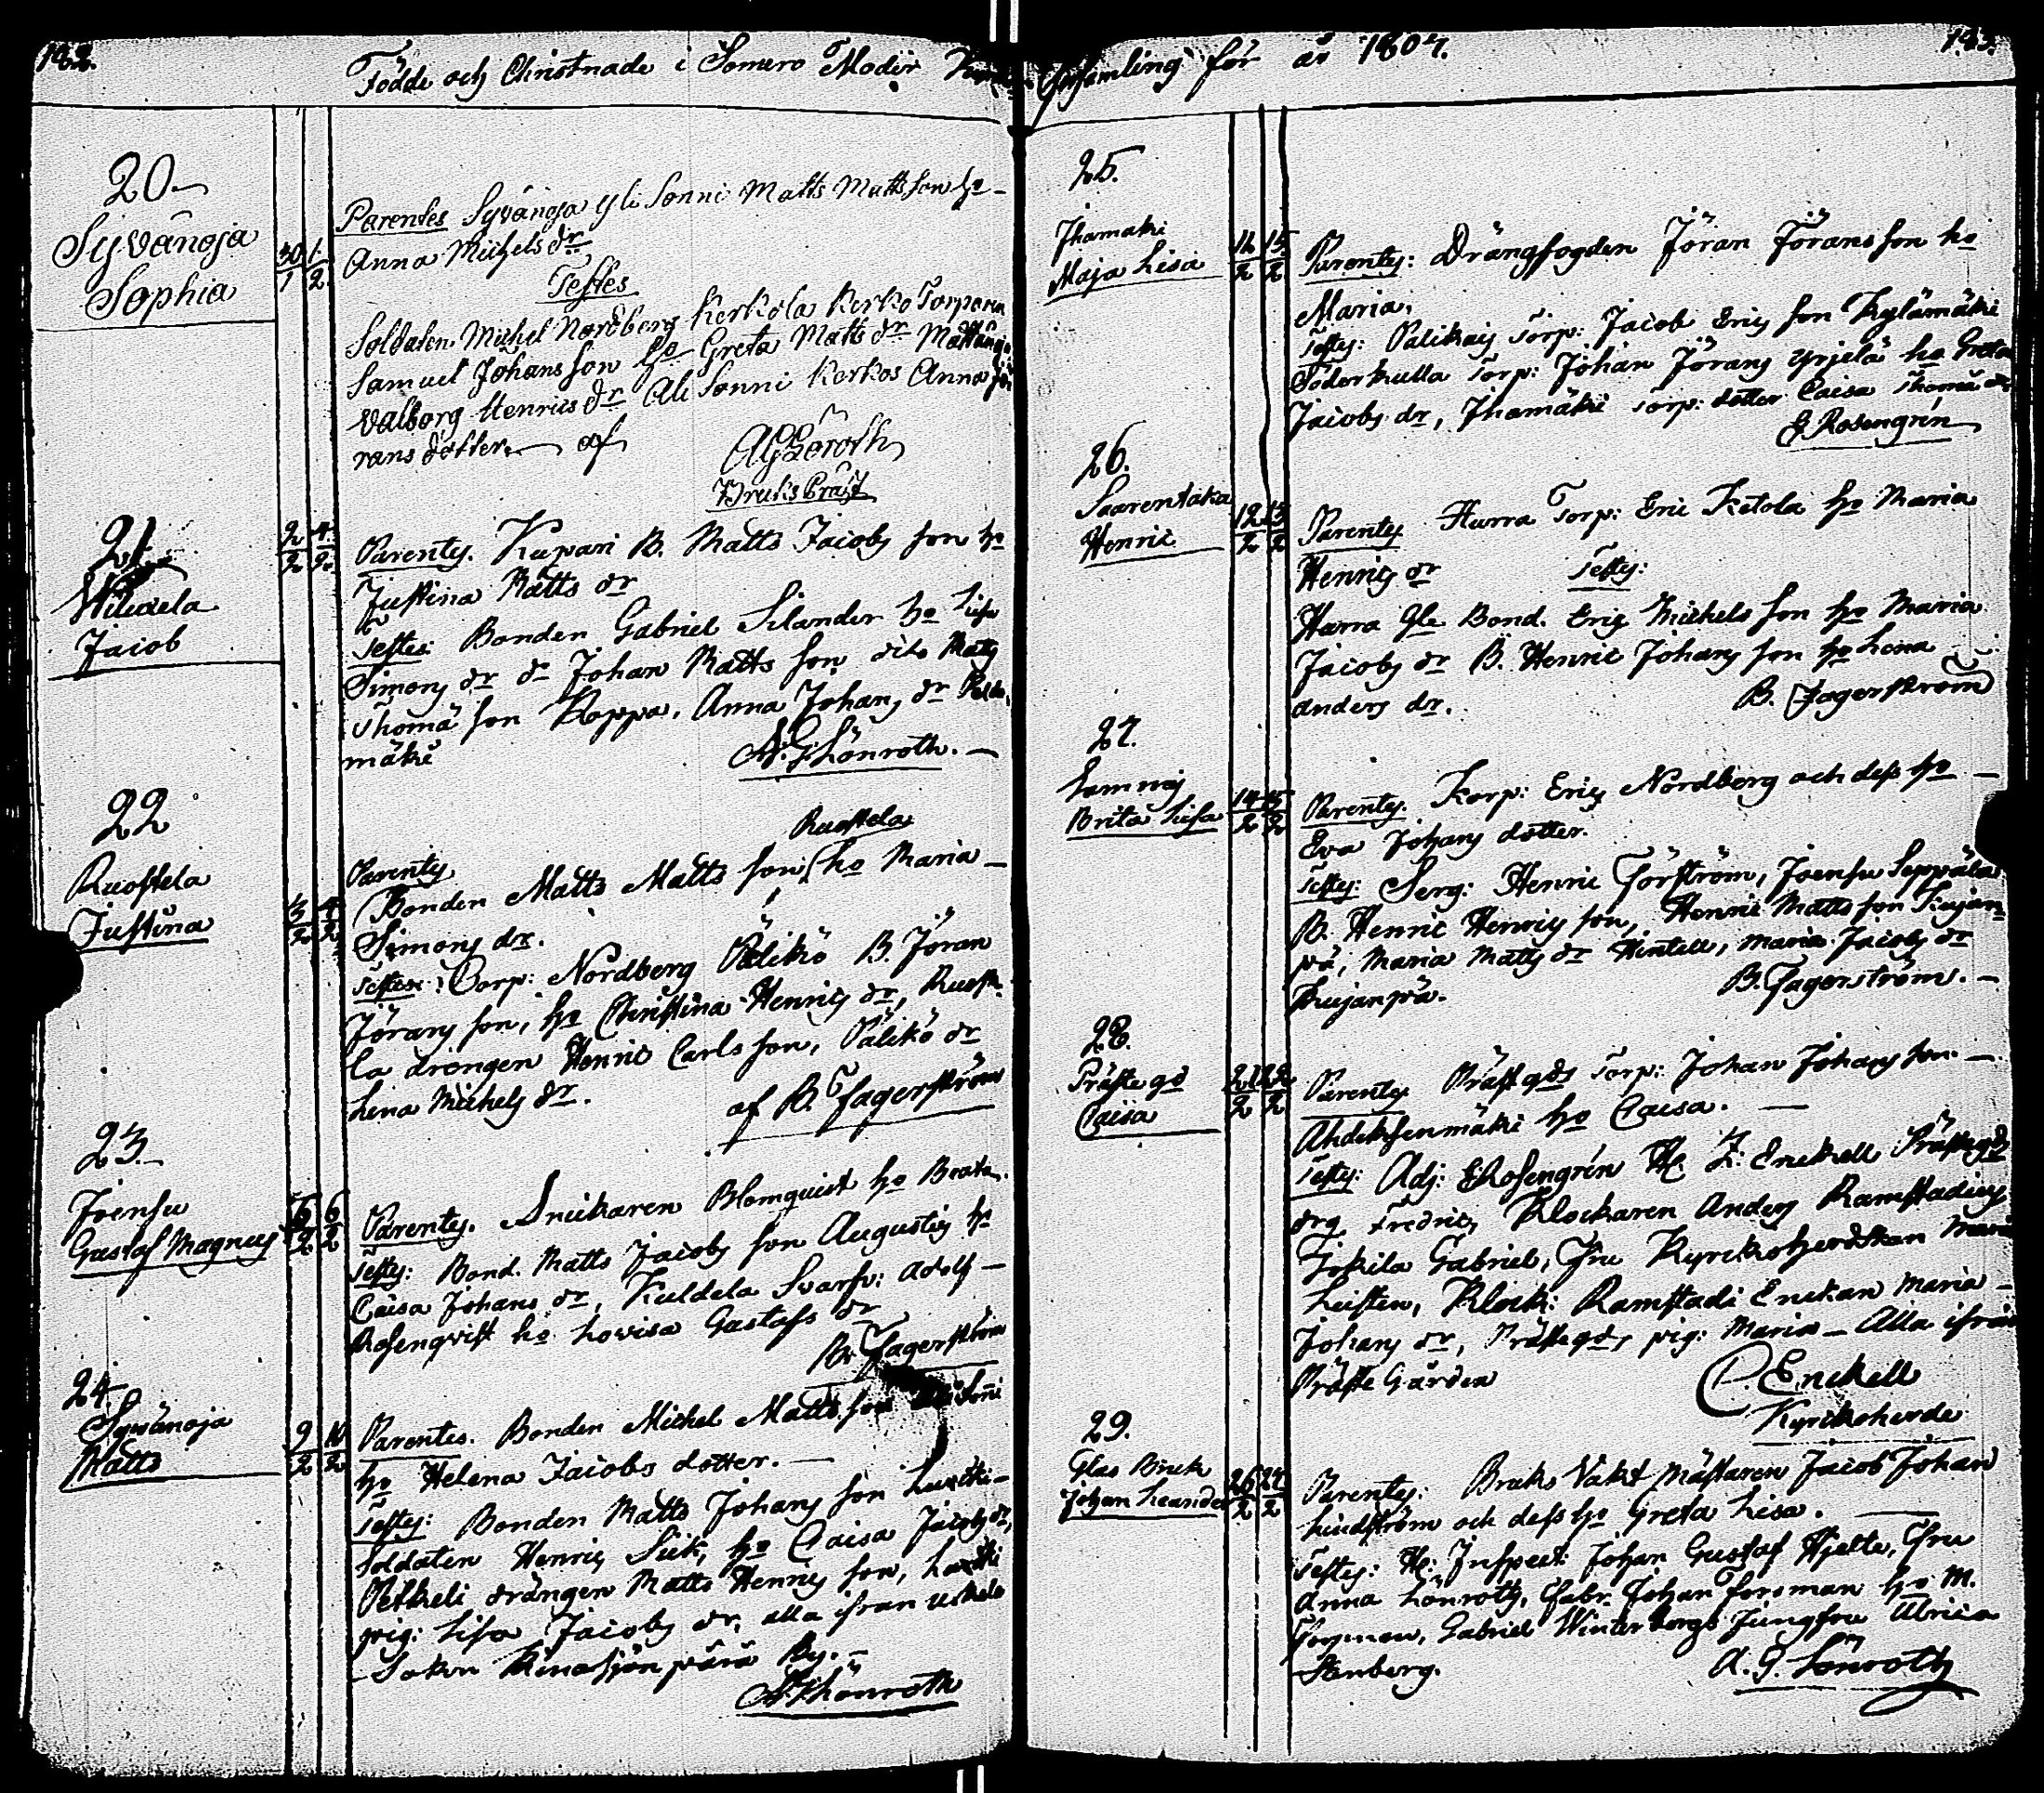 182.
Födde och Christnade i Somero Moder
Församling för år 1807.
183.
20
Syvänoja
Sophia
30/1 1/2
Parentes Syvänoja yli Sonni Matts Mattsson ho
Anna Michels dr
Testes
Soldaten Michel Nordberg Kerkola Kerko Torparen
Samuel Johansson ho Greta Matts dr
Valborg Henrics dr Ali Sonni Kerkos Anna Jö-
rans dotter. af
AGLönroth
Bruks Präst
21.
Wiluxela
Jacob
2/2 4/2
Parentes. Kupari B. Matts Jacobs son ho
Justina Matts dr
Testes: Bonden Gabriel Silander ho Lisa
Simons dr do Johan Matts son dito Matts
Thomæ son Koppa. Anna Johans dr
mäki
A. G. Lönroth.
22
Ruostela
Justina
3/2 4/2
Parentes Ruostela
Bonden Matts Matts son ho Maria
Simons dr.
Testes: Corp: Nordberg Pälikö B. Jöran
Jörans son, ho Christina Henrics dr, Ruoste-
la drengen Henric Carls son, Pälikö dr
Lena Michels dr.
af B. Fagerström
23.
Joensu
Gustaf Magnus
6/2 6/2
Parentes. Snickaren Blomquist ho Beata.
Testes: Bond. Matts Jacobs son Augustis ho
Caisa Johans dr, Kuldela Svarfv: Adolf
Rosenqvist ho Lovisa Gustafs dr
Br Fagerström
24
Syvänoja
Matts
9/2 10/2
Parentes. Bonden Michel Matts son Sonni
ho Helena Jacobs dotter.
Testes: Bonden Matts Johans son
Soldaten Henric Siik, ho Caisa Jacobs dr,
Petkeli drängen Matts Henrics son,
pig: Lisa Jacobs dr, alla ifran Uskela
Sokn Kinasjön pärä By.
A. G. Lönroth
25.
Jhamäki
Maja Lisa
12/2 15/2
Parentes: Drängfogden Jöran Jöransson ho
Maria.
Testes: Palikais Torp: Jacob Erics son Kylämäki
Söderkulla Torp: Johan Jörans Yrjelä ho Greta
Jacobs dr, Jhamäki Torp: dotter Caisa Thomæ dr
G Rosengrén
26.
Saarentaka
Henric
12/2 13/2
Parentes Hurra Torp: Eric Ketola ho Maria
Henrics dr Testes:
Harra Gle Bond. Erig Michels son ho Maria
Jacobs dr B. Henric Johans son ho Lena
Anders dr.
B. Fagerström
27.
Lammis
Brita Lisa
14/2 15/2
Parentes. Korp: Eric Nordberg och dess ho
Eva Johans dotter.
Testes: Serg: Henric Forsström, Joensu Seppälä
B. Henric Henrics son, Henric Matts son Kujan-
pä, Maria Matts dr Hintell, Maria Jacobs dr
Kujanpä.
B. Fagerström.
28.
Prästegd
Caisa
21/2 22/2
Parentes Prästgds Torp: Johan Johans son
Ahdeksenmäki ho Caisa.
Testes: Adj: Rosengrén H. Z: Enckell Prästegds
drg Fredric, Klockaren Anders Ramstadius
Jokila Gabriel, Fru Kyrkoherdskan Maria
Leisten, Klock: Ramstadi Enckan Maria
Johans dr, Prästegds pig: Maria Alla ifrån
Präste Gården
C. Enckell
Kyrkoherde
29.
Glas Bruk
Johan Leander
26/2 27/2
Parentes: Bruks Vakt Mästaren Jacob Johan
Lindström och dess ho Greta Lisa.
Testes: H: Inspect: Johan Gustaf Hjelte, Fru
Anna Lönroth, Fabr. Johan Forsman ho M.
Forsman, Gabriel Winterbergs Jungfru Ulrica
Stenberg.
A. G. Lönroth